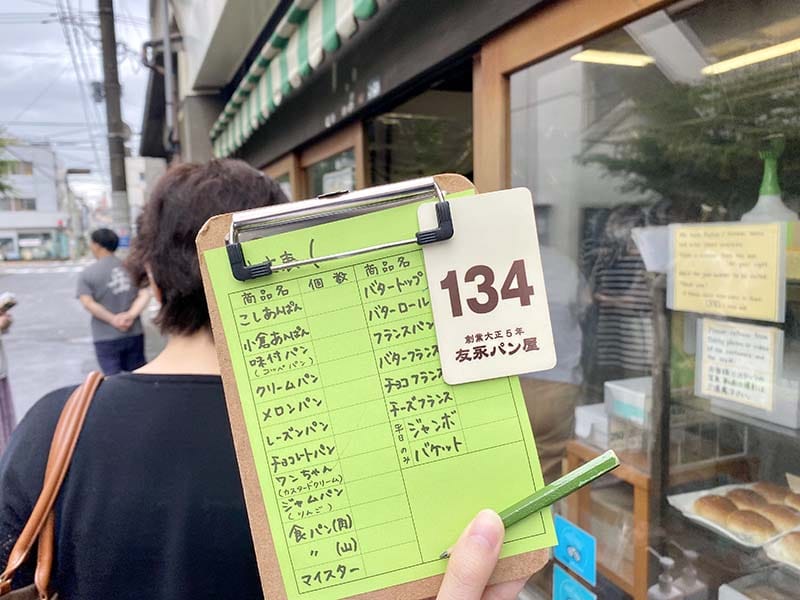 文表(
商品名 個数 商品名
こしあんぱん
小倉あんぱん
味付パン
(コッペパン)
クリームパン
メロンパン
レーズンパン
チョコレートパン
ワンちゃん
(カスタードクリーム)
ジャムパン
(りんご)
食パン(角)
〃 (山)
マイスター
バタートップ
バターロール
フランスパン
バターフランス
チョコフランス
チーズフランス
平日のみ
ジャンボ
バケット
134
創業大正5年
友永パン屋